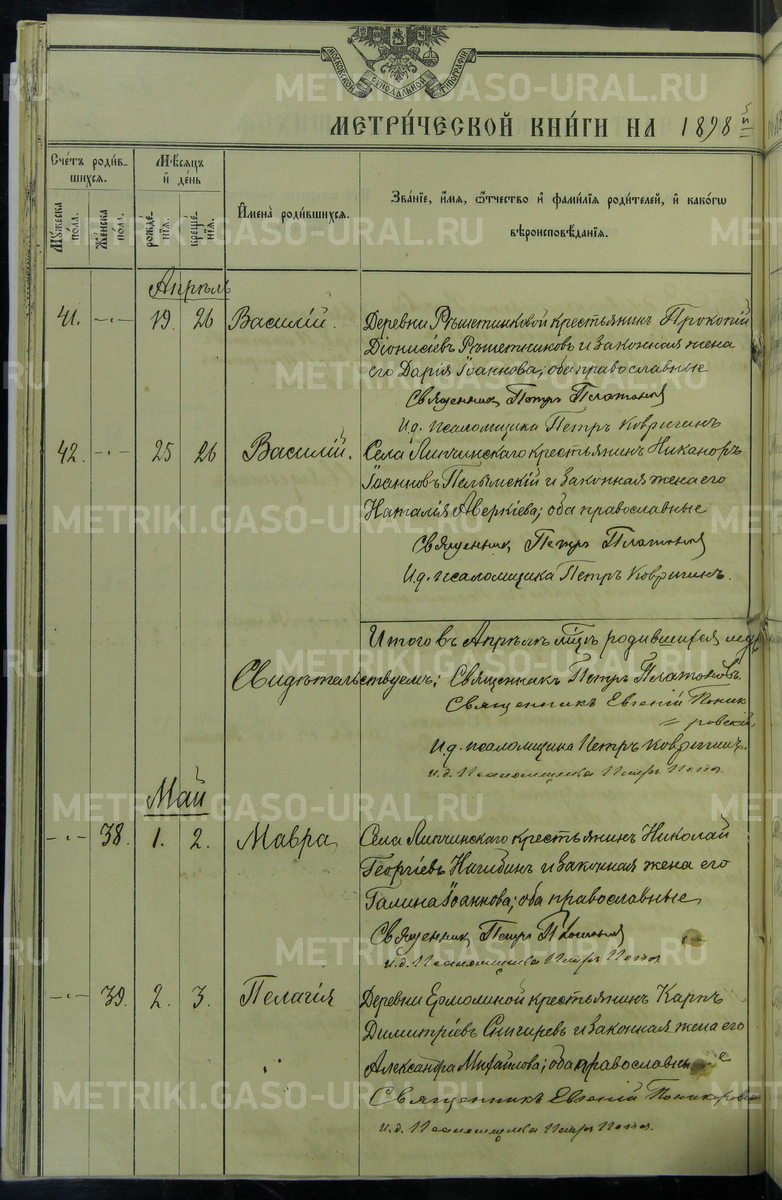 МОСКОВСКОЙ СѴНОДАЛЬНОЙ ТИПОГРАФІИ
МЕТРИ́ЧЕСКОЙ КНИ́ГИ НА 1898
Сче́тъ роди́в-
шихся.
Мѣ́сяцъ
и҆ де́нь
Му́жеска по́ла.
Же́нска по́ла.
рожде́нїя.
креще́нїя.
И҆мена̀ роди́вшихся.
Зва́нїе, и҆́мя, ѻ҆́тчество и҆ фами́лїя роди́телей, и҆ како́гѡ
вѣроисповѣ́данїя.
Апрѣль
41. -"- 19. 26 Василій. Деревни Рѣшетниковой крестьянинъ Прокопій
Діонисіевъ Рѣшетниковъ и законная жена
его Дарія Іоаннова; оба православные
Священникъ Петръ Платоновъ
И.д. псаломщика Петръ Ковригинъ
42. -"- 25 26 Василій. Села Липчинскаго крестьянинъ Никаноръ
Іоанновъ Пелымскій и законная жена его
Наталія Аверкіева; оба православные
Священникъ Петръ Платоновъ
И.д. псаломщика Петръ Ковригинъ.
Итого въ Апрѣлѣ мцѣ родившихся
Свидѣтельствуемъ: Священникъ Петръ Платоновъ.
Священникъ Евгеній Поник
= ровскій.
И.д. псаломщика Петръ Ковригинъ.
и.д. Псаломщика Петръ
Май
-"- 38. 1. 2. Мавра Села Липчинскаго крестьянинъ Николай
Георгіевъ Нагибинъ и законная жена его
Галина Іоаннова; оба православные
Священникъ Петръ Платоновъ
и.д. Псаломщика Петръ
-"- 39. 2. 3. Пелагія Деревни Ермолиной крестьянинъ Карпъ
Димитріевъ Снигиревъ и законная жена его
Александра Михайлова; оба православные
Священникъ Евгеній Поникаровскій
и.д. Псаломщика Петръ
METRIKI.GASO-URAL.RU